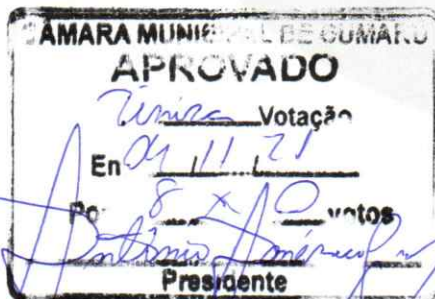 CÂMARA MUNICIPAL DE CUMARU
APROVADO
Única Votação
Em 04 11 21
Por 8 X 0 votos
Antônio Américo
Presidente